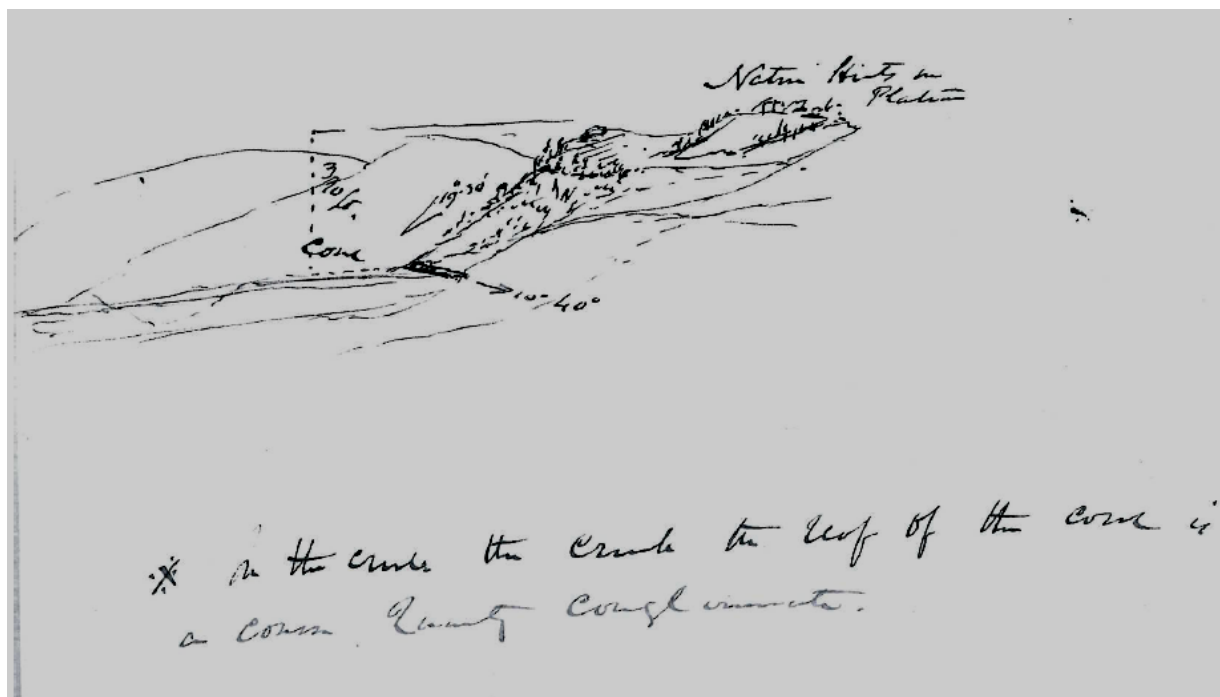 Native Huts on
Plateau
370 ft.
19° 30'
Coal
10° / 40°
※ In the creek the creek the roof of the coal is
a coarse Quartz Conglomerate.